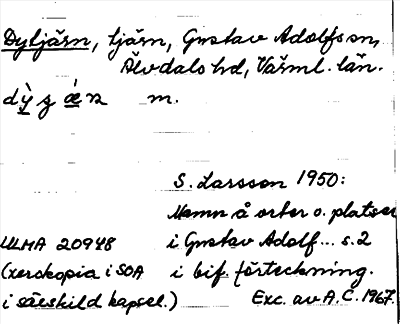 Dyltjärn, tjärn, Gustav Adolfs sn,
Älvdals hd, Värml. län.
dỳʒǽn m.
S. Larsson 1950:
Namn å orter o. platser
ULMA 20948 i Gustav Adolf... s. 2
(xerokopia i SOA i bif. förteckning.
i särskild kapsel.) Exc. av A.C. 1967.